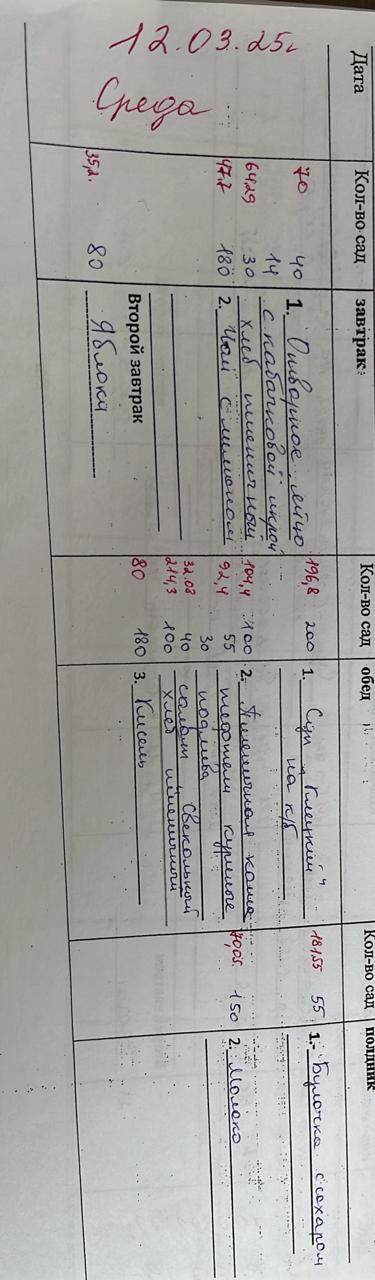 Дата
12.03.25г
Среда
Кол-во сад
70 40
14
64,29 30
47,7 180
35,2. 80
завтрак:
1. Отварное яйцо
с кабачковой икрой
хлеб пшеничный
2. Чай с лимоном
Второй завтрак
Яблоки
Кол-во сад
196,8 200
104,4 100
92,4 55
30
32.08 40
214,3 100
80 180
обед
1. Суп "Клецкий"
на к/б
2. Пшеничная каша
тефтели куриные
подлива
салат Свекольный
хлеб пшеничный
3. Кисель
Кол-во сад
181,55 55
70,05. 150
полдник
1. Булочка с сахаром
2. Молоко